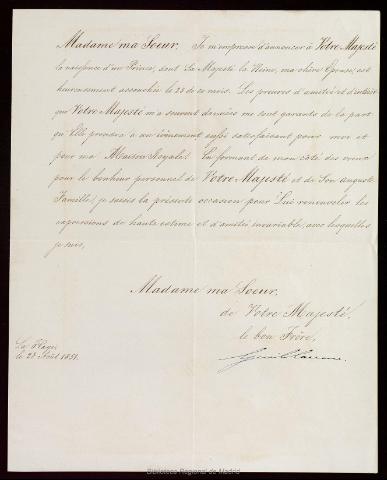 Madame ma Soeur. Je m'empresse d'annoncer à Votre Majesté
la naissance d'un Prince, dont Sa Majesté la Reine, ma chère Epouse, est
heureusement accouchée le 28 de ce mois. Les preuves d'amitié et d'intérêt
que Votre Majesté m'a souvent données me sont garants de la part
qu'Elle prendra à un évènement aussi satisfaisant pour moi et
pour ma Maison Royale. En formant de mon côté des voeux
pour le bonheur personnel de Votre Majesté et de Son auguste
Famille, je saisis la présente occasion pour Lui renouveler les
expressions de haute estime et d'amitié invariable, avec lesquelles
je suis,
Madame ma Soeur,
de Votre Majesté,
le bon Frère,
La Haye,
le 28 Août 1851.
Biblioteca Regional de Madrid